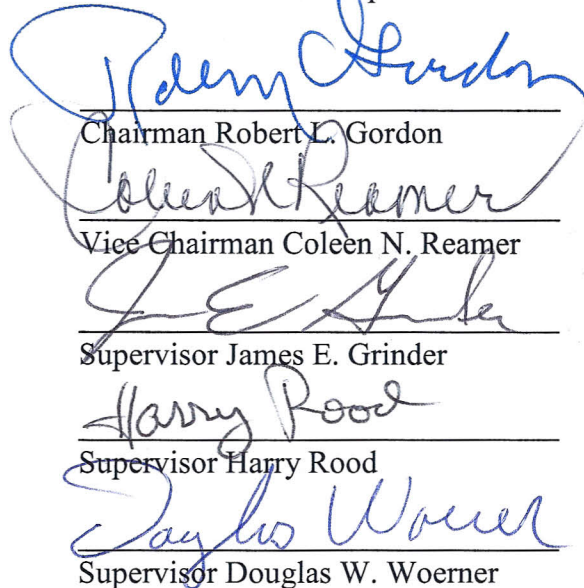 Robert L Gordon
Chairman Robert L. Gordon
Coleen N Reamer
Vice Chairman Coleen N. Reamer
James E Grinder
Supervisor James E. Grinder
Harry Rood
Supervisor Harry Rood
Douglas Woerner
Supervisor Douglas W. Woerner